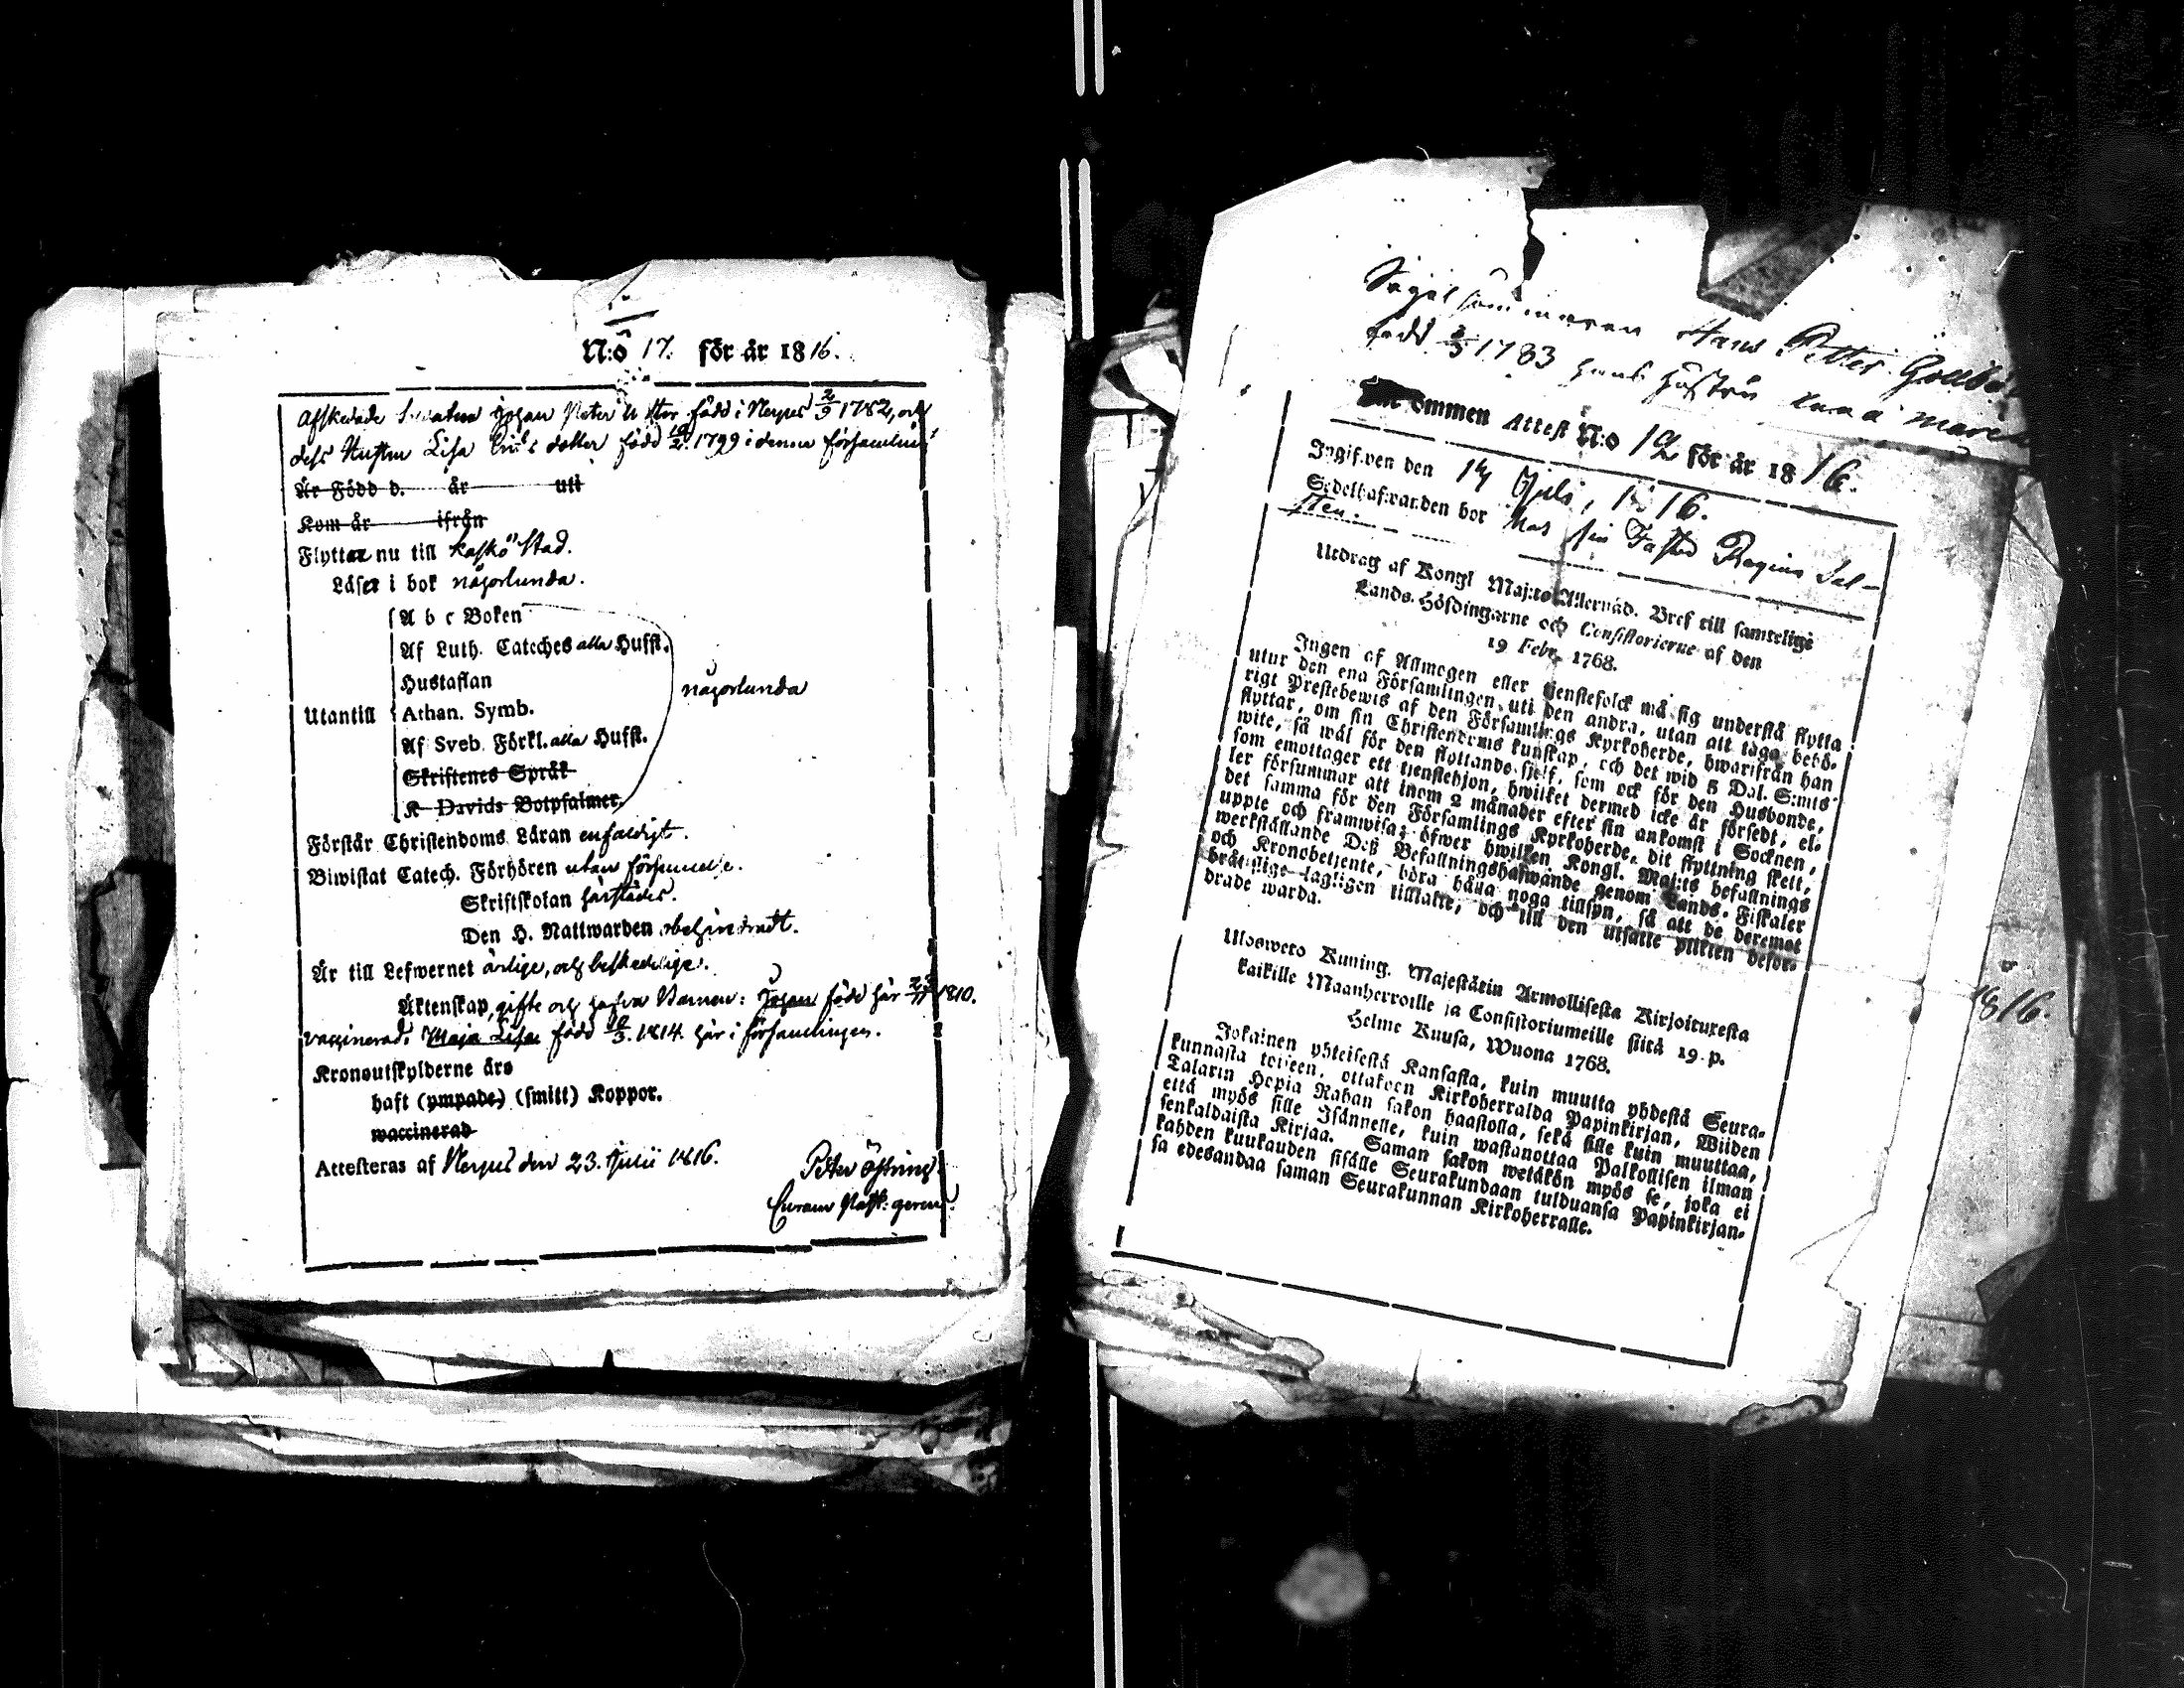 N:o 17. för år 1816.
Afskedade Johan Peter född i Nerpes 2/9 1782, och
dess Hustru Lisa dotter född 1799 i denna församling
Är Född d. år uti
Kom år ifrån
Flyttar nu till Kaskö Stad.
Läser i bok någorlunda.
A b c Boken
Af Luth. Cateches alla Hufst.
Hustaflan
någorlunda
Utantill
Athan. Symb.
Af Sveb. Förkl. alla Hufst.
Skriftenes Språk
K Davids Botpsalmer.
Förstår Christendoms Läran enfaldigt.
Biwistat Catech. Förhören utan försummelse.
Skriftskolan härstädes.
Den H. Nattwarden obehindradt.
Är till Lefwernet ärlige, och beskedelige.
Äktenskap, gifte och hafva Barnen: Johan född här 1810.
vaccinerad. Maja Lisa född 1814 här i församlingen.
Kronoutskylderne års
haft (ympade) (smitt) Koppor.
waccinerad
Attesteras af Nerpes den 23. Julii 1816.
Peter Östring
Curam Past: gerens.
Segelsömmaren Hans Petter
född 1783 hans hustru
ommen Attest N:o 12 för år 1816.
Ingifven den 14 Juli, 1816.
Sedelhafwanden bor hos sin Faster Regina Sal-
sten.
Utdrag af Kongl Maj:ts Allernåd. Bref till samtelige
Lands-Höfdingarne och Consistorierne af den
19 Febr. 1768.
Ingen af Allmogen eller tjenstefolck må sig understå flytta
utur den ena Församlingen, uti den andra, utan att taga behö-
rigt Prestebewis af den Församlings Kyrkoherde, hwarifrån han
flyttar, om sin Christendoms kunskap, och det wid 5 Dal. S:mts
wite, så wäl för den flyttande sjelf, som ock för den Husbonde,
som emottager ett tjenstehjon, hwilket dermed icke är försedt, el-
ler försummar att inom 2 månader efter sin ankomst i Socknen,
det samma för den Församlings Kyrkoherde, dit flyttning skett,
uppte och framwisa; öfwer hwilken Kongl. Maj:ts befallnings
werkställande Deß Befallningshafwande genom Lands-Fiskaler
och Kronobetjente, böra hålla noga tillsyn, så att de deremot
bråttslige lagligen tilltalte, och till den utsatte plikten befor-
drade warda.
Ulosweto Kuning. Majestätin Armollisesta Kirjoituxesta
kaikille Maanherroille ja Consistoriumeille siitä 19. p.
Helme Kuusa, Wuona 1768.
Jokainen yhteisestä Kansasta, kuin muutta yhdestä Seura-
kunnasta toiseen, ottakoon Kirkoherralda Papinkirjan, Wiiden
Talarin Hopia Rahan sakon haastolla, sekä sille kuin muuttaa,
että myös sille Isännelle, kuin wastanottaa Palkollisen ilman
senkaldaista Kirjaa. Saman sakon wetäkön myös se, joka ei
kahden kuukauden sisälle Seurakundaan tulduansa Papinkirjan-
sa edesandaa saman Seurakunnan Kirkoherralle.
1816.